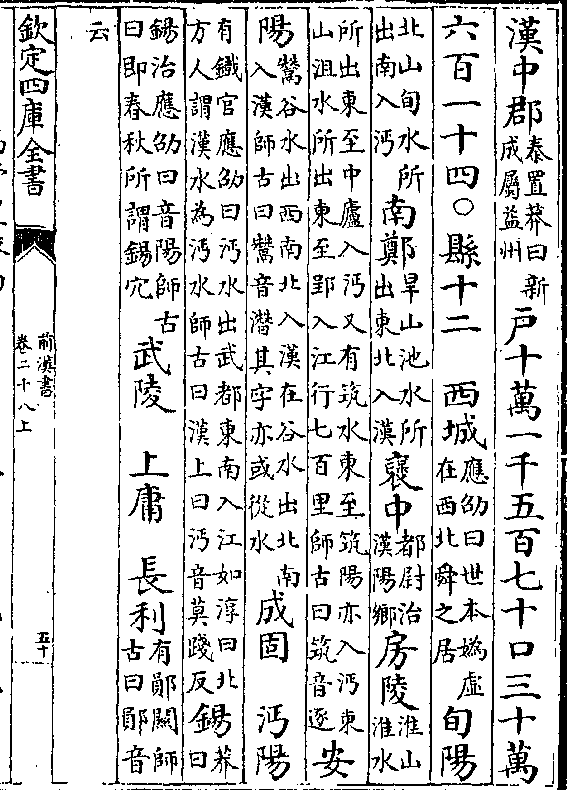 漢中郡秦置莽曰新成屬益州戶十萬一千五百七十口三十萬
六百一十四○縣十二　西城應劭曰世本媯虛在西北舜之居旬陽
北山旬水所出南入沔南鄭旱山池水所出東北入漢襃中都尉治漢陽鄉房陵淮山淮水
所出東至中廬入沔又有筑水東至筑陽亦入沔東山沮水所出東至郢入江行七百里師古曰筑音逐安
陽鬵谷水出西南北入漢在谷水出北南入漢師古曰鬵音潛其字亦或從水成固　沔陽
有鐵官應劭曰沔水出武都東南入江如淳曰北方人謂漢水為沔水師古曰漢上曰沔音莫踐反錫莽曰
錫治應劭曰音陽師古曰即春秋所謂錫穴武陵　上庸　長利有鄖關師古曰鄖音
云
欽定四庫全書
前漢書
卷二十八上
五十